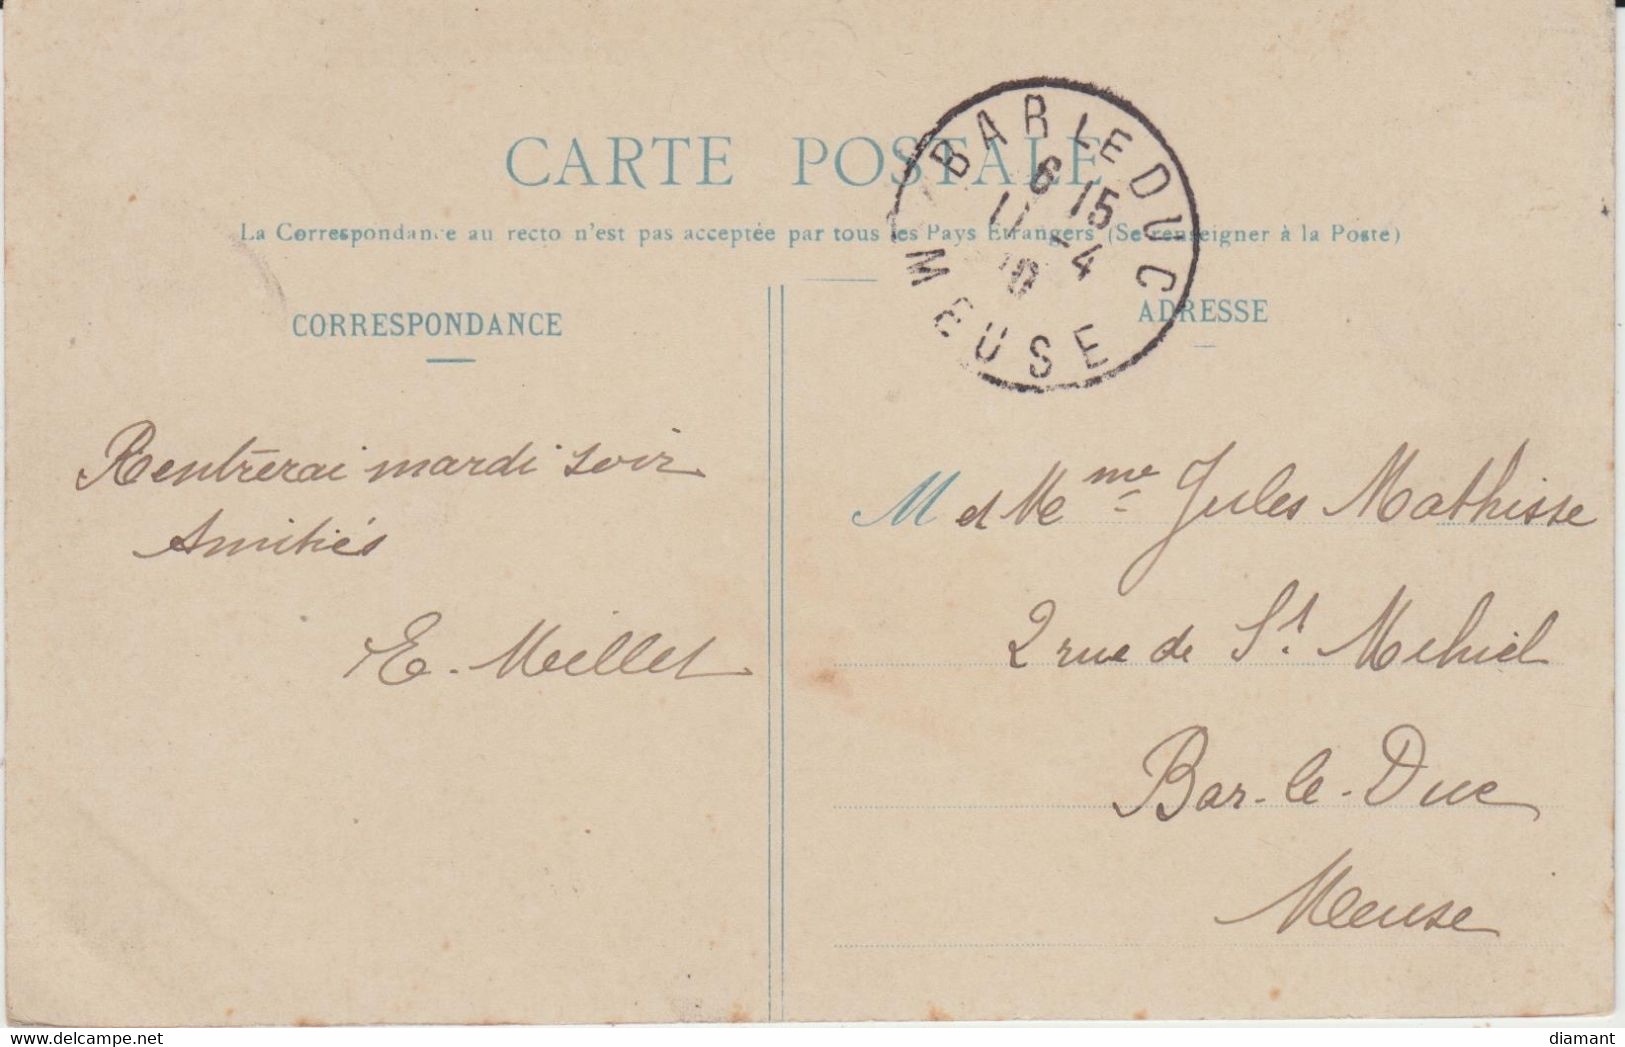 CARTE POSTALE
La Correspondance au recto n'est pas acceptée par tous les Pays Etrangers (Se renseigner à la Poste)
BAR LE DUC
6 15
11 - 4
10
MEUSE
CORRESPONDANCE
Rentrerai mardi soir
Amitiés
E. Millet
ADRESSE
M et Me me Jules Mathisse
2 rue de St. Mihiel
Bar-le-Duc
Meuse
diamant